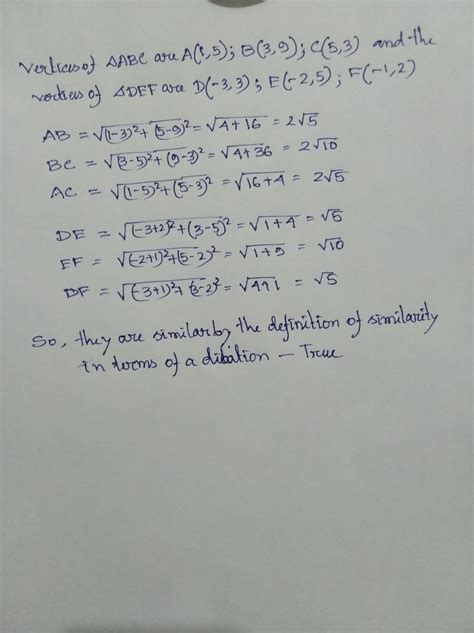 Vertices of △ABC are A(1,5); B(3,9); C(5,3) and the
vertices of △DEF are D(-3,3); E(-2,5); F(-1,2)
AB = √(1-3)²+(5-9)² = √4+16 = 2√5
BC = √(3-5)²+(9-3)² = √4+36 = 2√10
AC = √(1-5)²+(5-3)² = √16+4 = 2√5
DE = √(-3+2)²+(3-5)² = √1+4 = √5
EF = √(-2+1)²+(5-2)² = √1+9 = √10
DF = √(-3+1)²+(3-2)² = √4+1 = √5
So, they are similar by the definition of similarity
in terms of a dilation – True